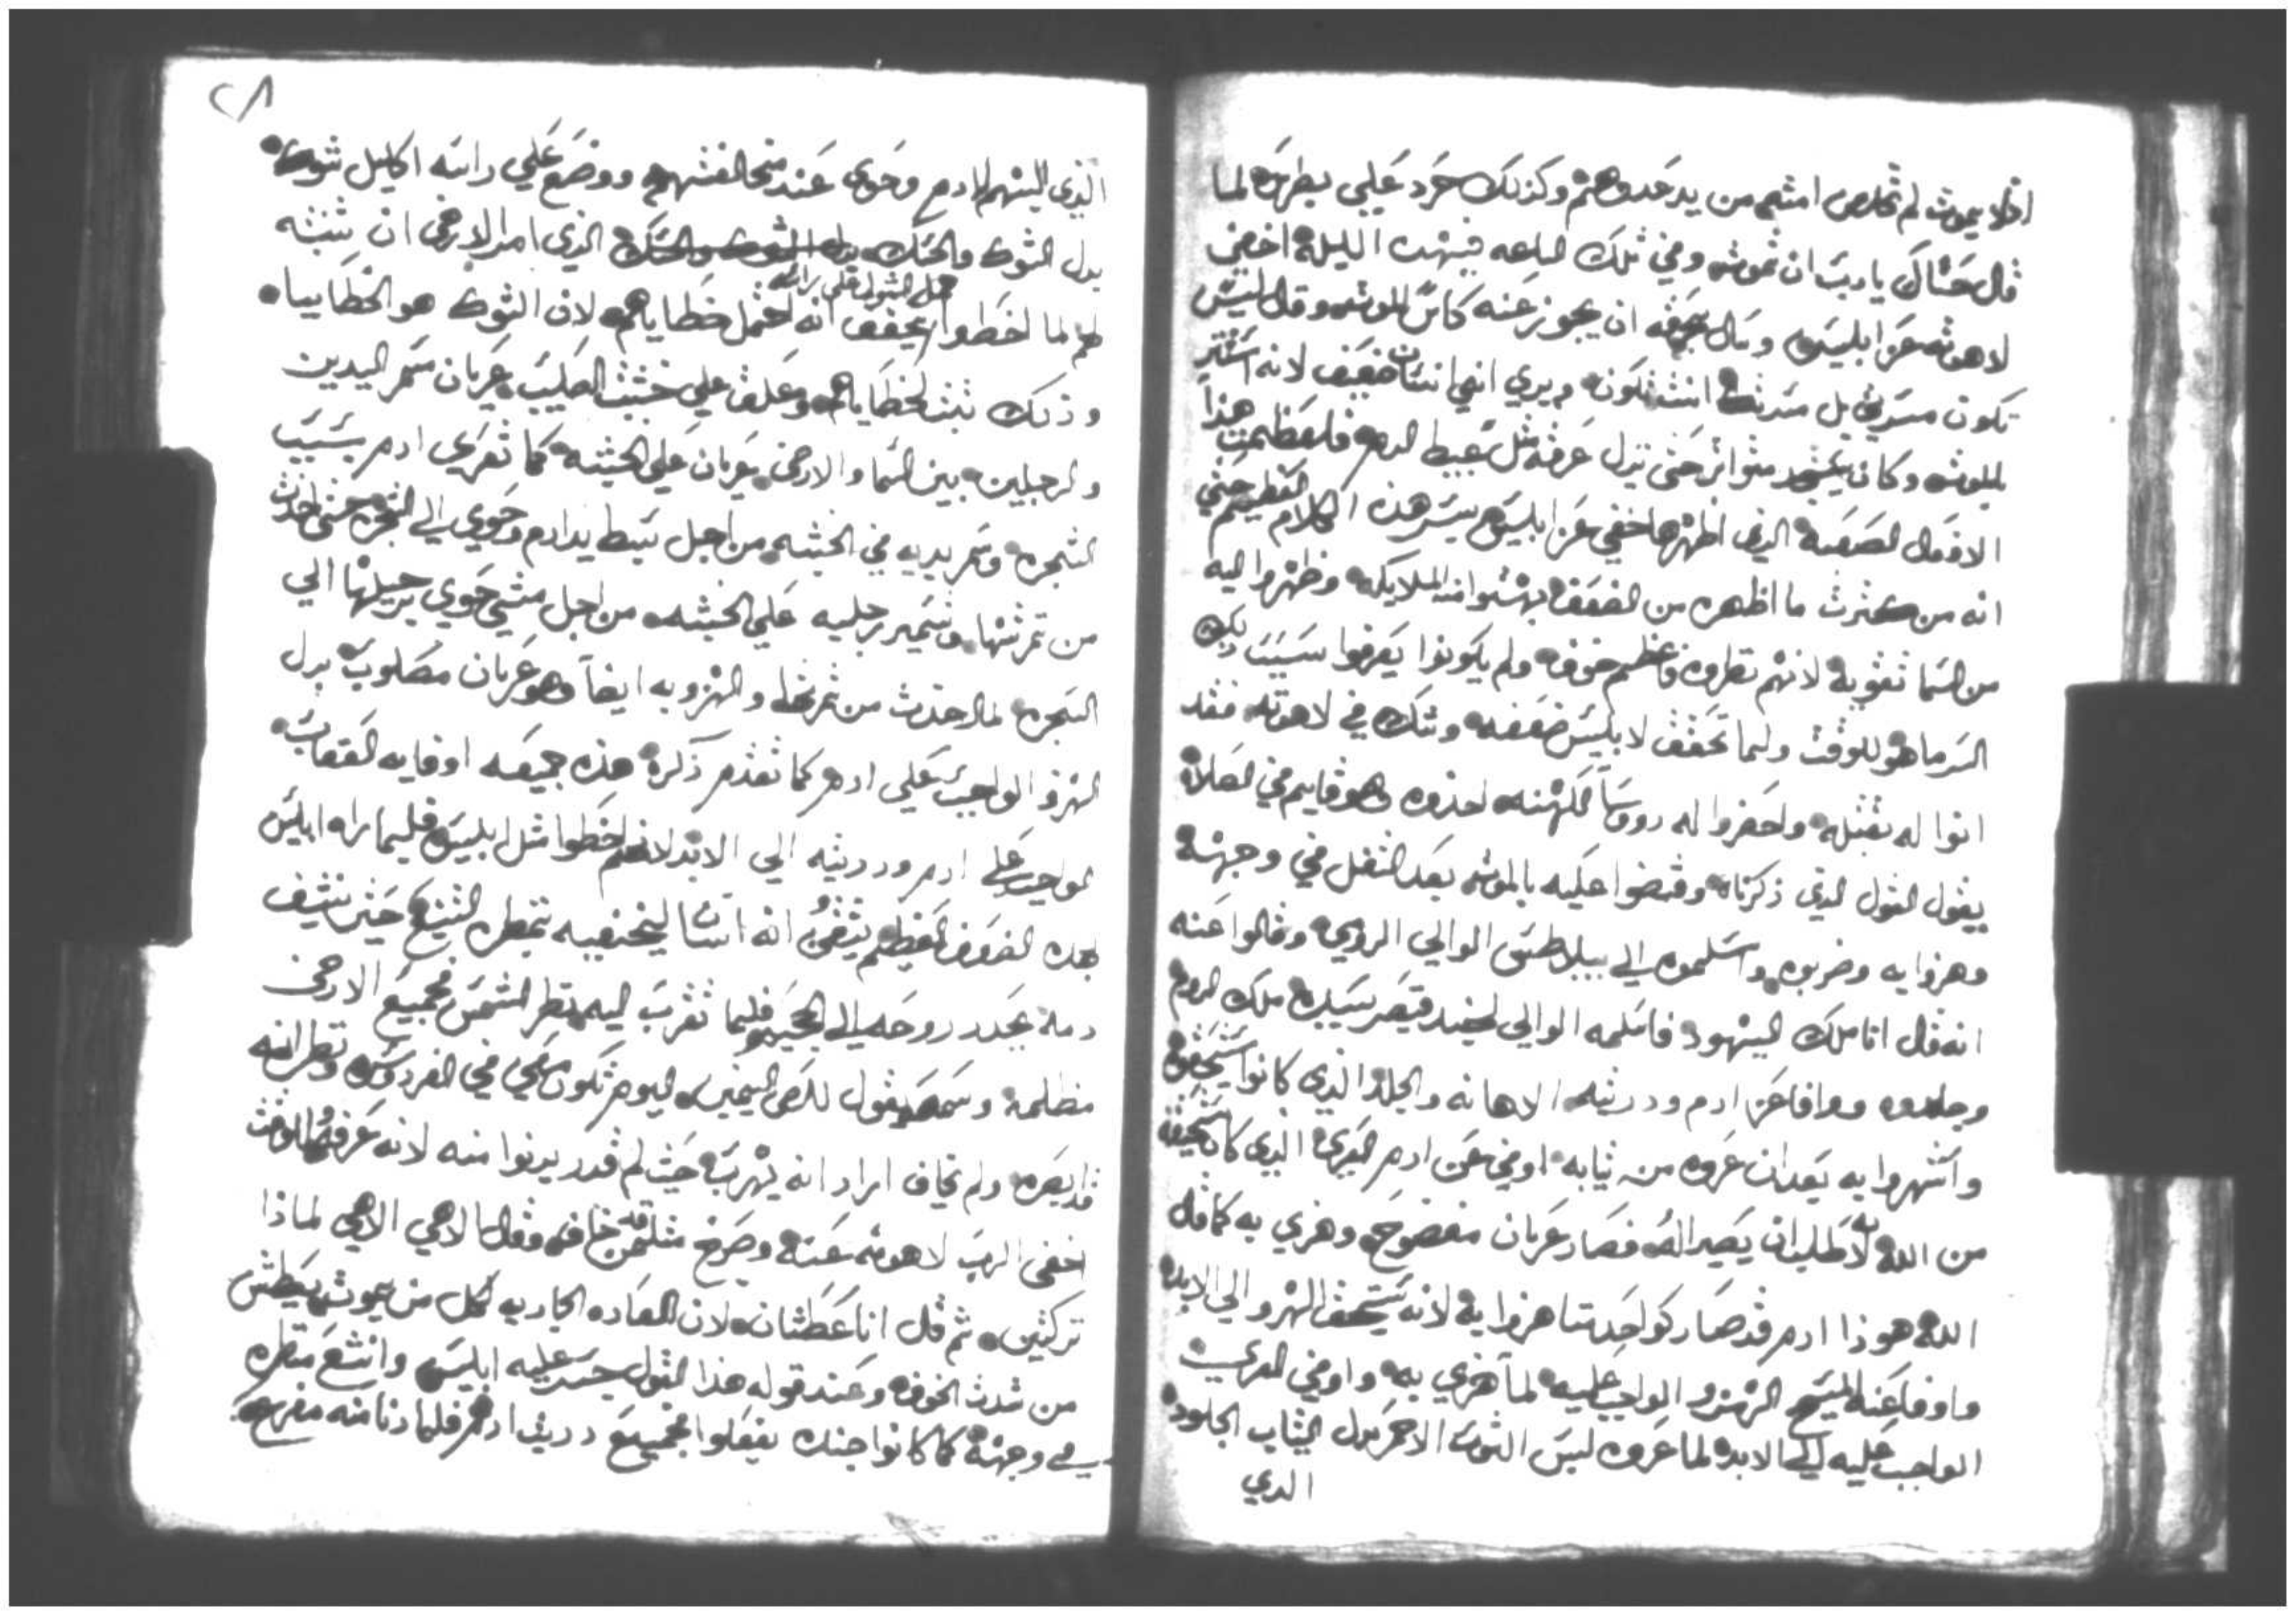 اذا لا يموت لم تخلص امته من يد عدوهم وكذلك حرد علي بطرس لما
قال حشاك يا رب ان تموت وفي تلك الساعه فيهده الليلة اخفى
لاهوته عن ابليس وسال ان يجوز عنه كاس الموت وقال ليس
تكون مسرتي بل مسرتك انت تكون ويري اني انسان ضعيف لانه استتر
للموت وكان يسجد متواتر حتى نزل عرقه مثل عبيط الدم فلعظمت هذا
الافعال الصعبة الذي اظهرها اخفي عن ابليس سر هذه الكلام العظيم حتي
انه من كترت ما اظهره من الضعف بهتوا منه الملايكه وظهروا اليه
من السما تقويه لانهم نظروه في عظم خوفه ولم يكونوا يعرفوا سبب ذلك
السر ما هو للوقت ولما تحقق لابليس ضعفه وشك في لاهوته فقد
اتوا له بقتله واحضروا له روسا الكهنه اخذوه وهو قايم في الصلاة
يقول القول الذي ذكرناه وقضوا عليه بالموت بعد التفل في وجهة
وهزوا به وضربوه واسلموه الي بيلاطس الوالي الرومي وقالوا عنه
انه قال انا ملك اليهود فاسلمه الوالي لجند قيصر سيده ملك الروم
وجلدوه ووافا عن ادم ودريته الاهانه والجلد الذي كانوا يستحقوه
واشهروا به بعد ان عروه من ثيابه اوفي عن ادم العري الذي كان يستحقه
من الله لا طلب به ان يصير اله فصار عريان مفضوح وهزي به كما قال
الله هوذا ادم قد صار كواحد منا هزوا به لانه يستحق الهزو الي الابد
واوفا عنه المسيح الهزو الواجب عليه لما هزي به واوفي العري
الواجب عليه الي الابد لما عروه لبس التوب الاحمر بدل الثياب الجلود
الدي
٢٨
الذي البسهم لادم وحوى عند مخالفتهم ووضع علي راسه اكليل شوك
بدل الشوك والحسك الذي امر الارض ان تنبته
حمل الشوك على راسه
لهم لما اخطوا يحقق انه احتمل خطاياهم لان الشوك هو الخطايا
وذلك نبت لخطاياهم وعلق علي خشبت الصليب عريان مسمر اليدين
والرجلين بين السما والارض عريان علي الخشبه كما تعرى ادم بسبب
الشجره وسمر يديه في الخشبه من اجل بسط يد ادم وحوي الي الشجره حتى اخذت
من تمرتها وتسمير رجليه علي الخشبه من اجل مشي حوي برجيلها الي
الشجره لما اخذت من تمرتها والهزو به ايضا وهو عريان مصلوب بدل
الهزو الواجب علي ادم كما تقدم ذكرة هذه جميعه اوفا به العقاب
الواجب علي ادم ودريته الي الابد لانهم اخطوا مثل ابليس فليما راه ابليس
بهده الضعف العظيم تيقن انه انسان
دمه يجدد روحه الي الجحيم فليما تقرب اليه نظر الشمس وجميع الارض
مظلمة وسمعه يقول للص اليمين اليوم تكون معي في الفردوس ونظر انه
قد ابصره ولم يخاف اراد انه يهرب حيت لم قدر يدنوا منه لانه عرفه للوقت
اخفى الرب لاهوته عنه وصرخ مثل من خاف وقال الاهي الاهي لماذا
تركتني ثم قال انا عطشان لان العاده الجاريه لكل من يموت يعطش
من شدت الخوف وعند قوله هذا القول جسر عليه ابليس وانتشع منظره
في وجهة كما كانوا جنده يفعلوا بجميع دريت ادم فلما دنا منه مفرح